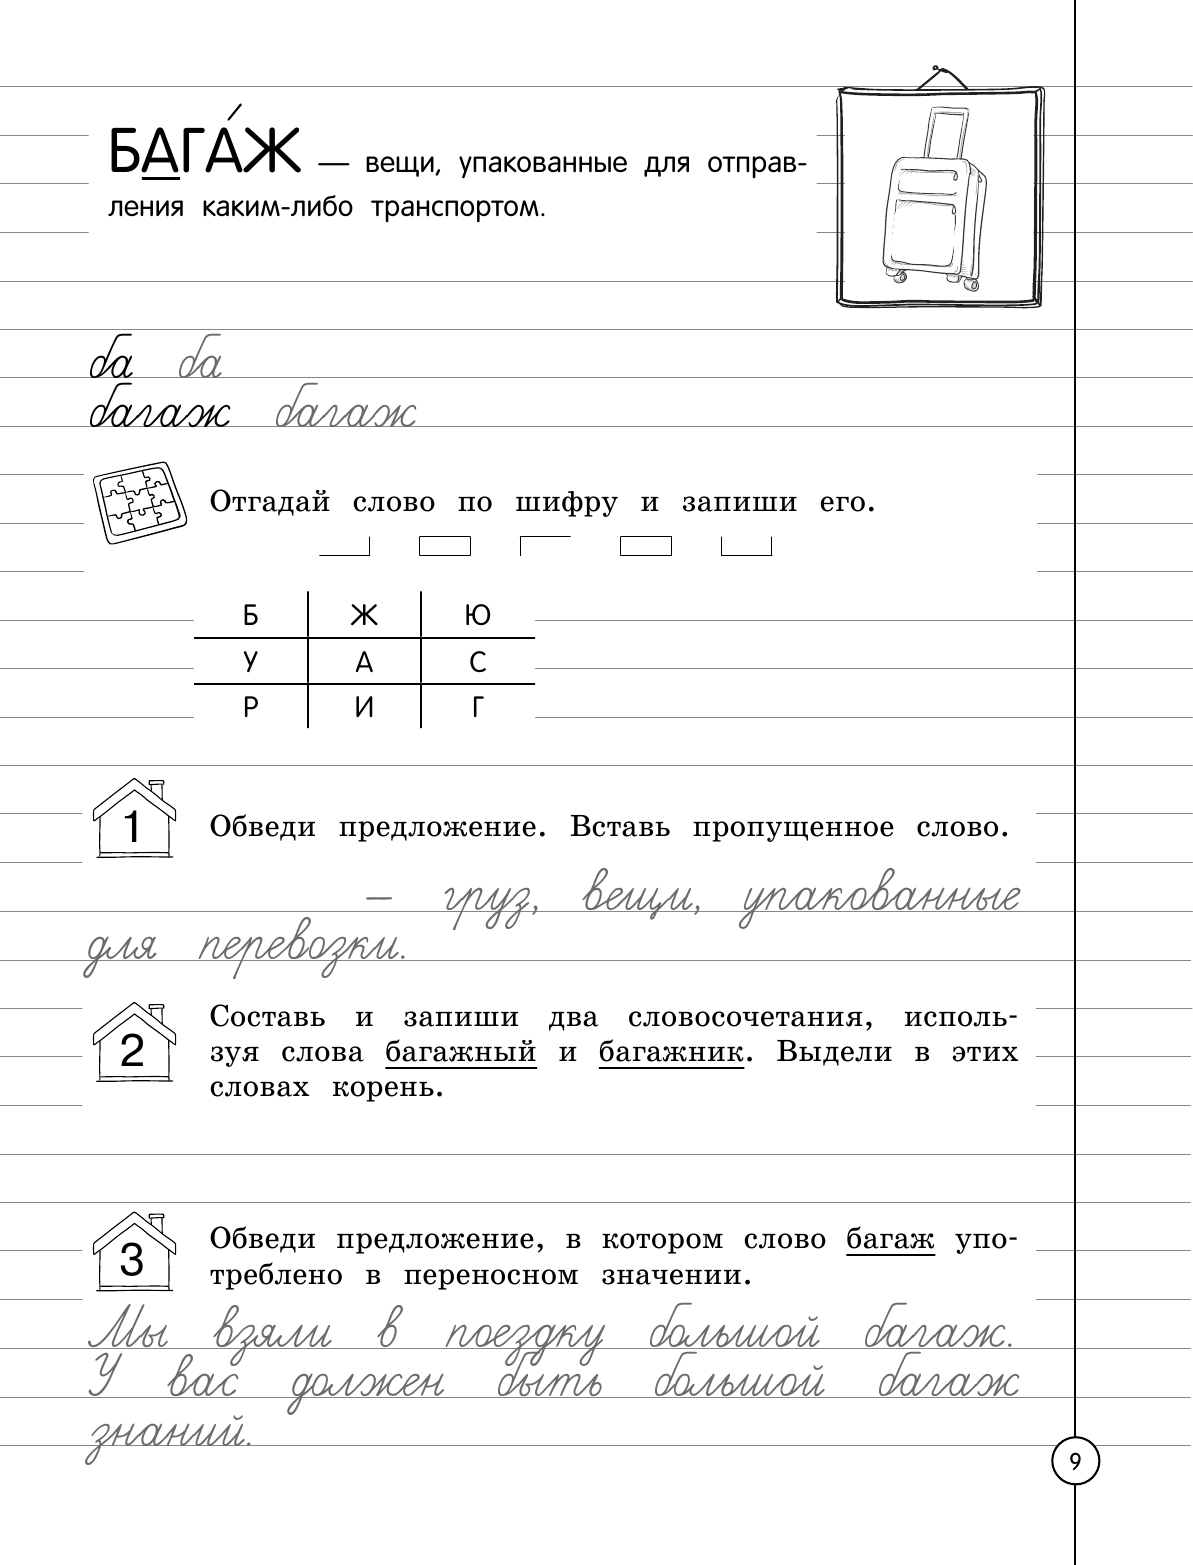 БАГА́Ж — вещи, упакованные для отправ-
ления каким-либо транспортом.
ба ба
багаж багаж
Отгадай слово по шифру и запиши его.
Б Ж Ю
У А С
Р И Г
1 Обведи предложение. Вставь пропущенное слово.
— груз, вещи, упакованные
для перевозки.
2 Составь и запиши два словосочетания, исполь-
зуя слова багажный и багажник. Выдели в этих
словах корень.
3 Обведи предложение, в котором слово багаж упо-
треблено в переносном значении.
Мы взяли в поездку большой багаж.
У вас должен быть большой багаж
знаний.
9